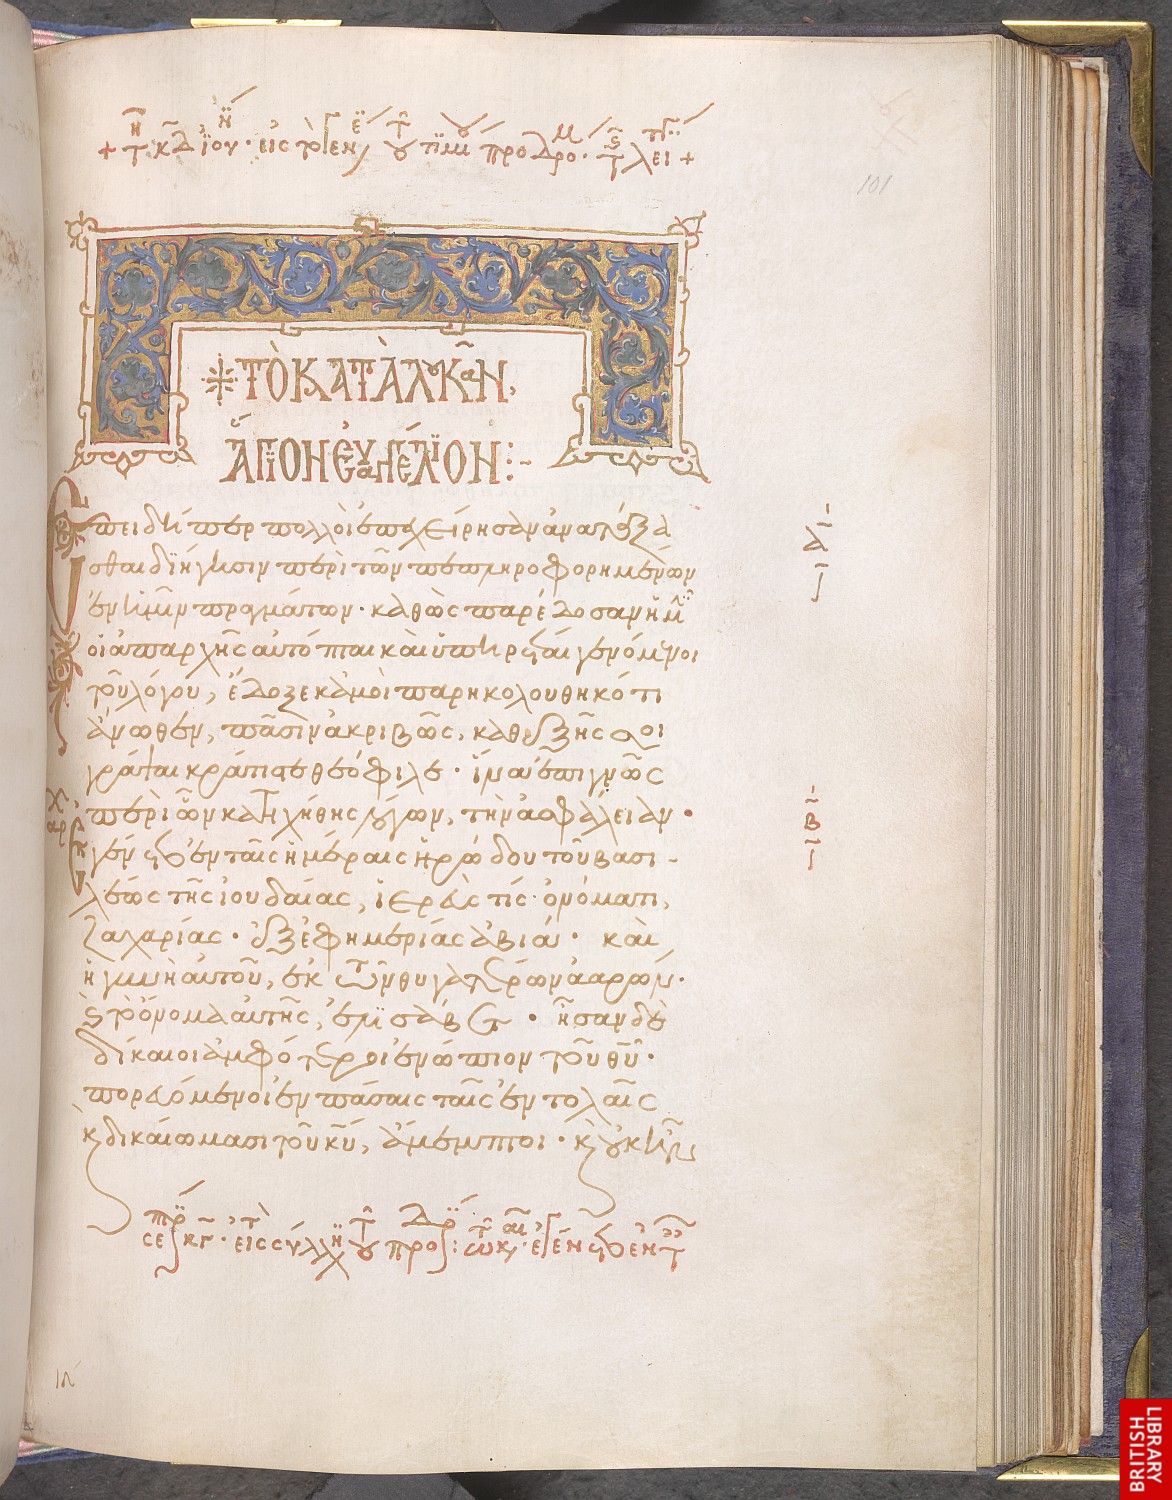 + τῇ κδ ἰουνίου · εἰς τὸ γενέσιον τοῦ τιμίου προδρόμου ·
101
τὸ κατὰ λουκᾶν,
ἅγιον εὐαγγέλιον :-
Ἐπειδήπερ πολλοὶ ἐπεχείρησαν ἀνατάξα
σθαι διήγησιν περὶ τῶν πεπληροφορημένων
ἐν ἡμῖν πραγμάτων · καθὼς παρέδοσαν ἡμῖν
οἱ ἀπαρχῆς αὐτόπται καὶ ὑπηρέται γενόμενοι
τοῦ λόγου, ἔδοξε κἀμοὶ παρηκολουθηκότι
ἄνωθεν, πᾶσιν ἀκριβῶς, καθεξῆς σοι
γράψαι κράτιστε θεόφιλε · ἵνα ἐπιγνῷς
περὶ ὧν κατηχήθης λόγων, τὴν ἀσφάλειαν ·
Ἐγένετο ἐν ταῖς ἡμέραις ἡρώδου τοῦ βασι-
λέως τῆς ἰουδαίας, ἱερεύς τις ὀνόματι,
ζαχαρίας · ἐξ ἐφημερίας ἀβιά · καὶ
ἡ γυνὴ αὐτοῦ, ἐκ τῶν θυγατέρων ἀαρών ·
καὶ τὸ ὄνομα αὐτῆς, ἐλισάβετ · ἦσαν δὲ
δίκαιοι ἀμφότεροι ἐνώπιον τοῦ θυ ·
πορευόμενοι ἐν πάσαις ταῖς ἐντολαῖς
κ δικαιώμασι τοῦ κυ, ἄμεμπτοι · κ οὐκ ἦν
BRITISH
LIBRARY